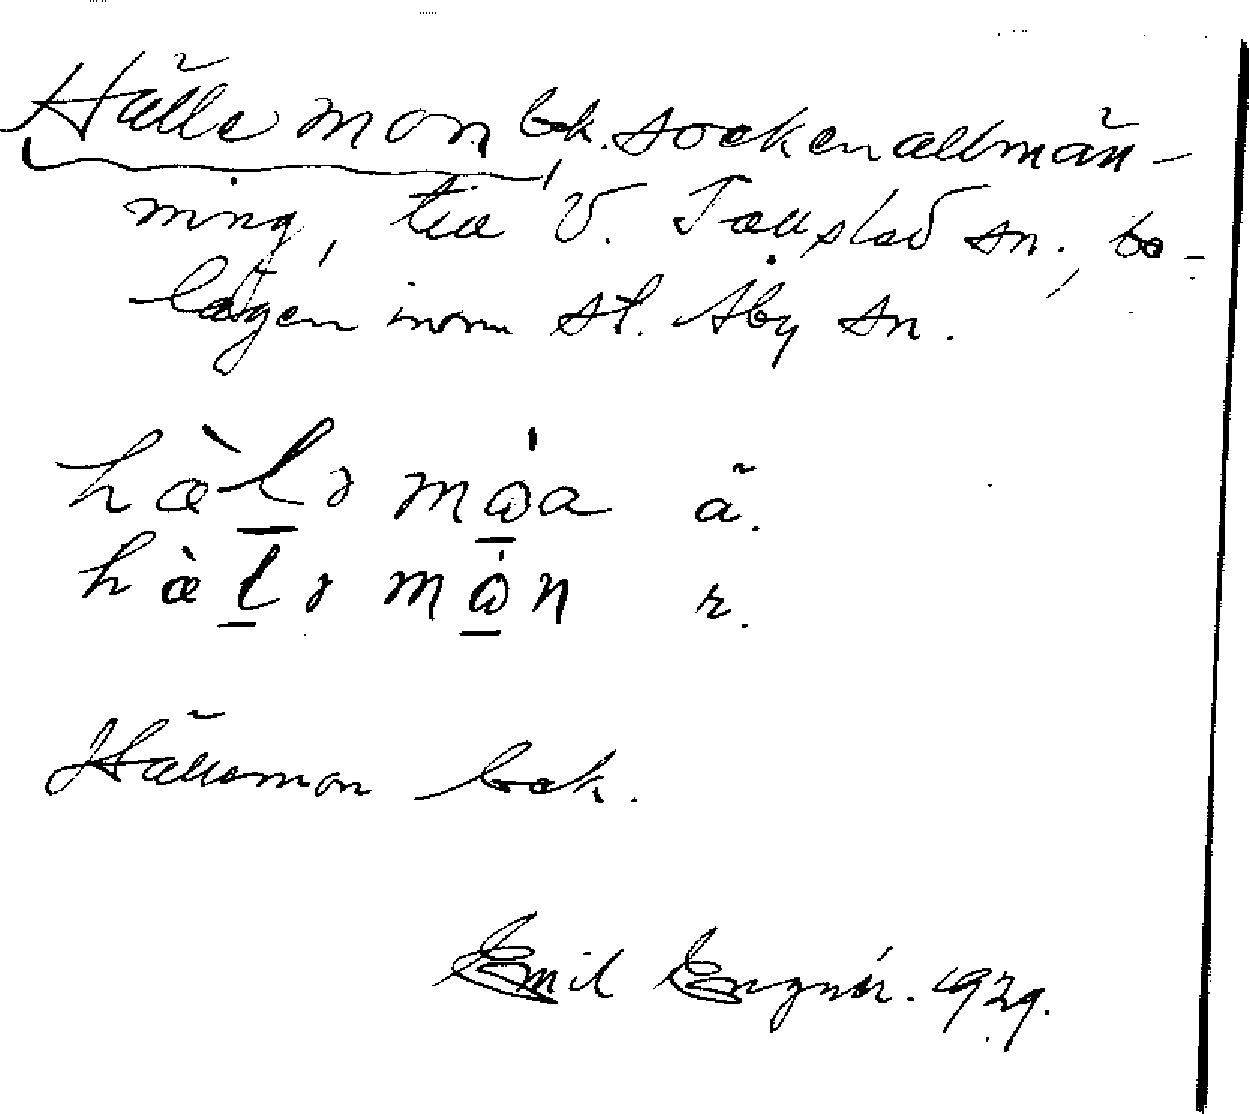 Hälle mon, bok. sockenallmän-
ning, till V. Tollstad sn., be-
lägen inom St. Åby sn.
hæ̀l̠ə må̠a ä.
hæ̀l̠ə må̠n r.
Hällemon bok.
Emil Engnér. 1929.